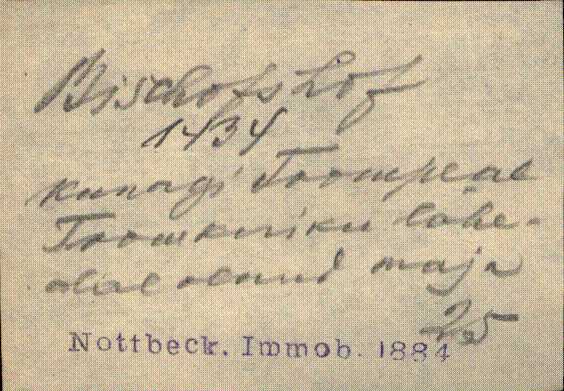 Bischofshof
1434
kunagi Toompeal
Toomkiriku lähe-
dal olnud maja
25
Nottbeck. Immob. 1884